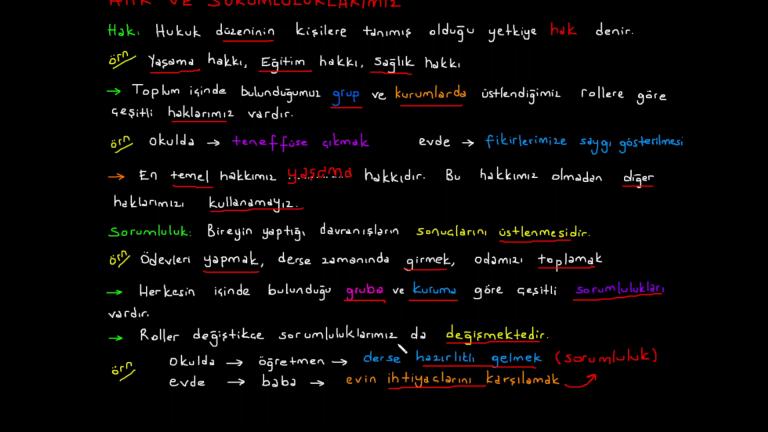 HAK VE SORUMLULUKLARIMIZ
Hak: Hukuk düzeninin kişilere tanımış olduğu yetkiye hak denir.
örn Yaşama hakkı, Eğitim hakkı, Sağlık hakkı
→ Toplum içinde bulunduğumuz grup ve kurumlarda üstlendiğimiz rollere göre
çeşitli haklarımız vardır.
örn okulda → teneffüse çıkmak evde → fikirlerimize saygı gösterilmesi
→ En temel hakkımız yaşama hakkıdır. Bu hakkımız olmadan diğer
haklarımızı kullanamayız.
Sorumluluk: Bireyin yaptığı davranışların sonuçlarını üstlenmesidir.
örn Ödevleri yapmak, derse zamanında girmek, odamızı toplamak
→ Herkesin içinde bulunduğu gruba ve kuruma göre çeşitli sorumlulukları
vardır.
→ Roller değiştikçe sorumluluklarımız da değişmektedir.
örn okulda → öğretmen → derse hazırlıklı gelmek (sorumluluk)
evde → baba → evin ihtiyaçlarını karşılamak